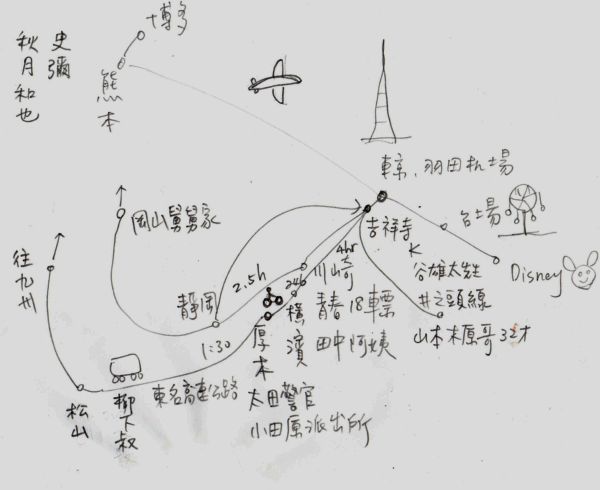 史彌
秋月和也
博多
熊本
東京、羽田机場
岡山舅舅家
吉祥寺
台場
K
谷雄太
Disney
往九州
4hr
川崎
2.5h
静岡
246
青春18車票
井之頭線
1:30
橫濱
田中阿姨
山本木原哥 32才
厚木
東名高速公路
松山
柳下叔
太田警官
小田原派出所